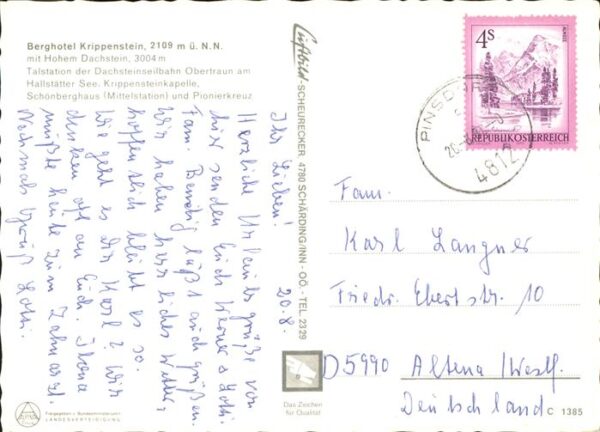 Berghotel Krippenstein, 2109 m ü. N.N.
mit Hohem Dachstein, 3004 m
Talstation der Dachsteinseilbahn Obertraun am
Hallstätter See, Krippensteinkapelle,
Schönberghaus (Mittelstation) und Pionierkreuz
20.8.
Ihr Lieben!
Herzliche Urlaubsgrüße von
hier senden Euch Werner & Lotti.
Fam. läßt auch grüßen.
Wir haben herrliches Wetter,
hoffentlich bleibt es so.
Wie geht es Dir Karl? Wir
denken oft an Euch.
mußte heute zum Zahnarzt.
Nochmals Gruß Lotti.
Luftbild SCHEURECKER, 4780 SCHÄRDING/INN - OÖ. - TEL 2329
4S
REPUBLIK ÖSTERREICH
PINSDORF
4812
Fam.
Karl Langner
Friedr. Ebert str. 10
D5990 Altena /Westf.
Deutschland
Das Zeichen
für Qualität
C 1385
Freigegeben v. Bundesministerium f.
LANDESVERTEIDIGUNG